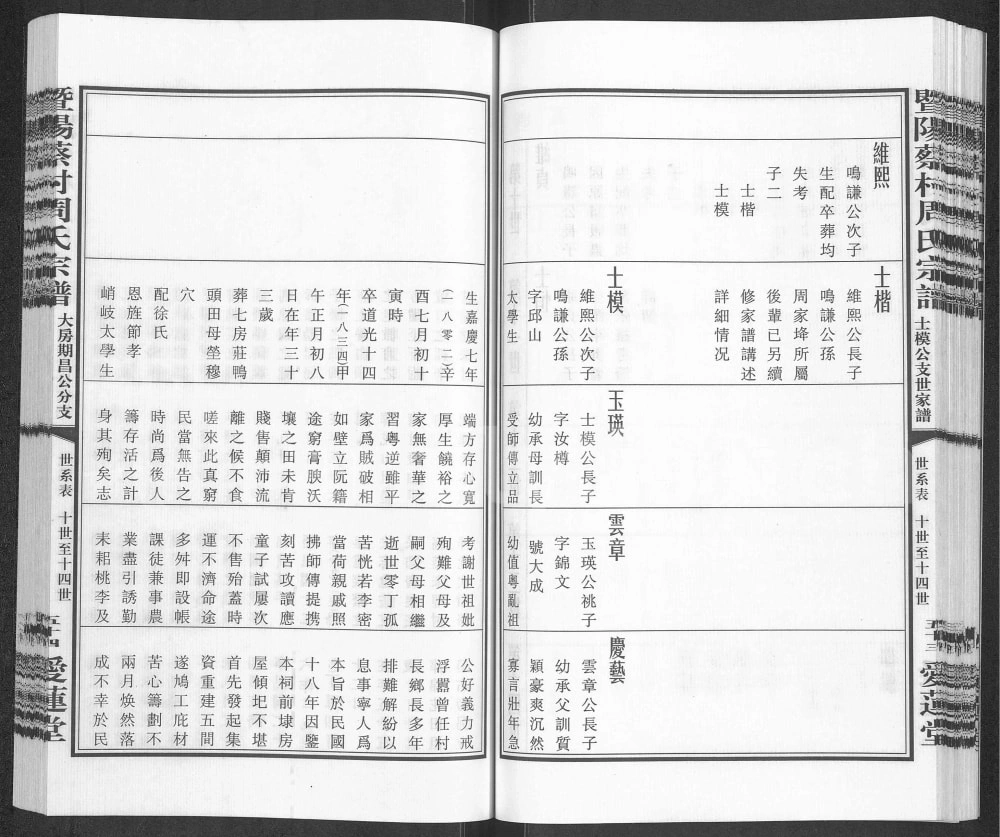 暨陽蔡村周氏宗譜
士模公支世家譜
世系表
十世至十四世
五十三
愛蓮堂
維熙
鳴謙公次子
生配卒葬均
失考
子二
士楷
士模
士楷
維熙公長子
鳴謙公孫
周家埄所屬
後輩已另續
修家譜講述
詳細情況
士模
維熙公次子
鳴謙公孫
字邱山
太學生
玉瑛
士模公長子
字汝樽
幼承母訓長
受師傳立品
雲章
玉瑛公祧子
字錦文
號大成
幼值粵亂祖
慶藝
雲章公長子
幼承父訓質
穎豪爽沉然
寡言壯年急
生嘉慶七年
(一八〇二)辛
酉七月初十
寅時
卒道光十四
年(一八三四)甲
午正月初八
日在年三十
三歲
葬七房莊鴨
頭田母塋穆
穴
配徐氏
恩旌節孝
峭岐太學生
端方存心寬
厚生饒裕之
家無奢華之
習粵逆雖平
家爲賊破相
如壁立阮籍
途窮膏腴沃
壤之田未肯
賤售顛沛流
離之候不食
嗟來此真窮
民當無告之
時尚爲後人
籌存活之計
身其殉矣志
考謝世祖妣
殉難父母及
嗣父母相繼
逝世零丁孤
苦恍若李密
當荷親戚照
拂師傳提携
刻苦攻讀應
童子試屢次
不售殆蓋時
運不濟命途
多舛即設帳
課徒兼事農
業盡引誘勤
耒耜桃李及
公好義力戒
浮囂曾任村
長鄉長多年
排難解紛以
息事寧人爲
本旨於民國
十八年因鑒
本祠前埭房
屋傾圮不堪
首先發起集
資重建五間
遂鳩工庇材
苦心籌劃不
兩月煥然落
成不幸於民
暨陽蔡村周氏宗譜
大房期昌公分支
世系表
十世至十四世
五十四
愛蓮堂